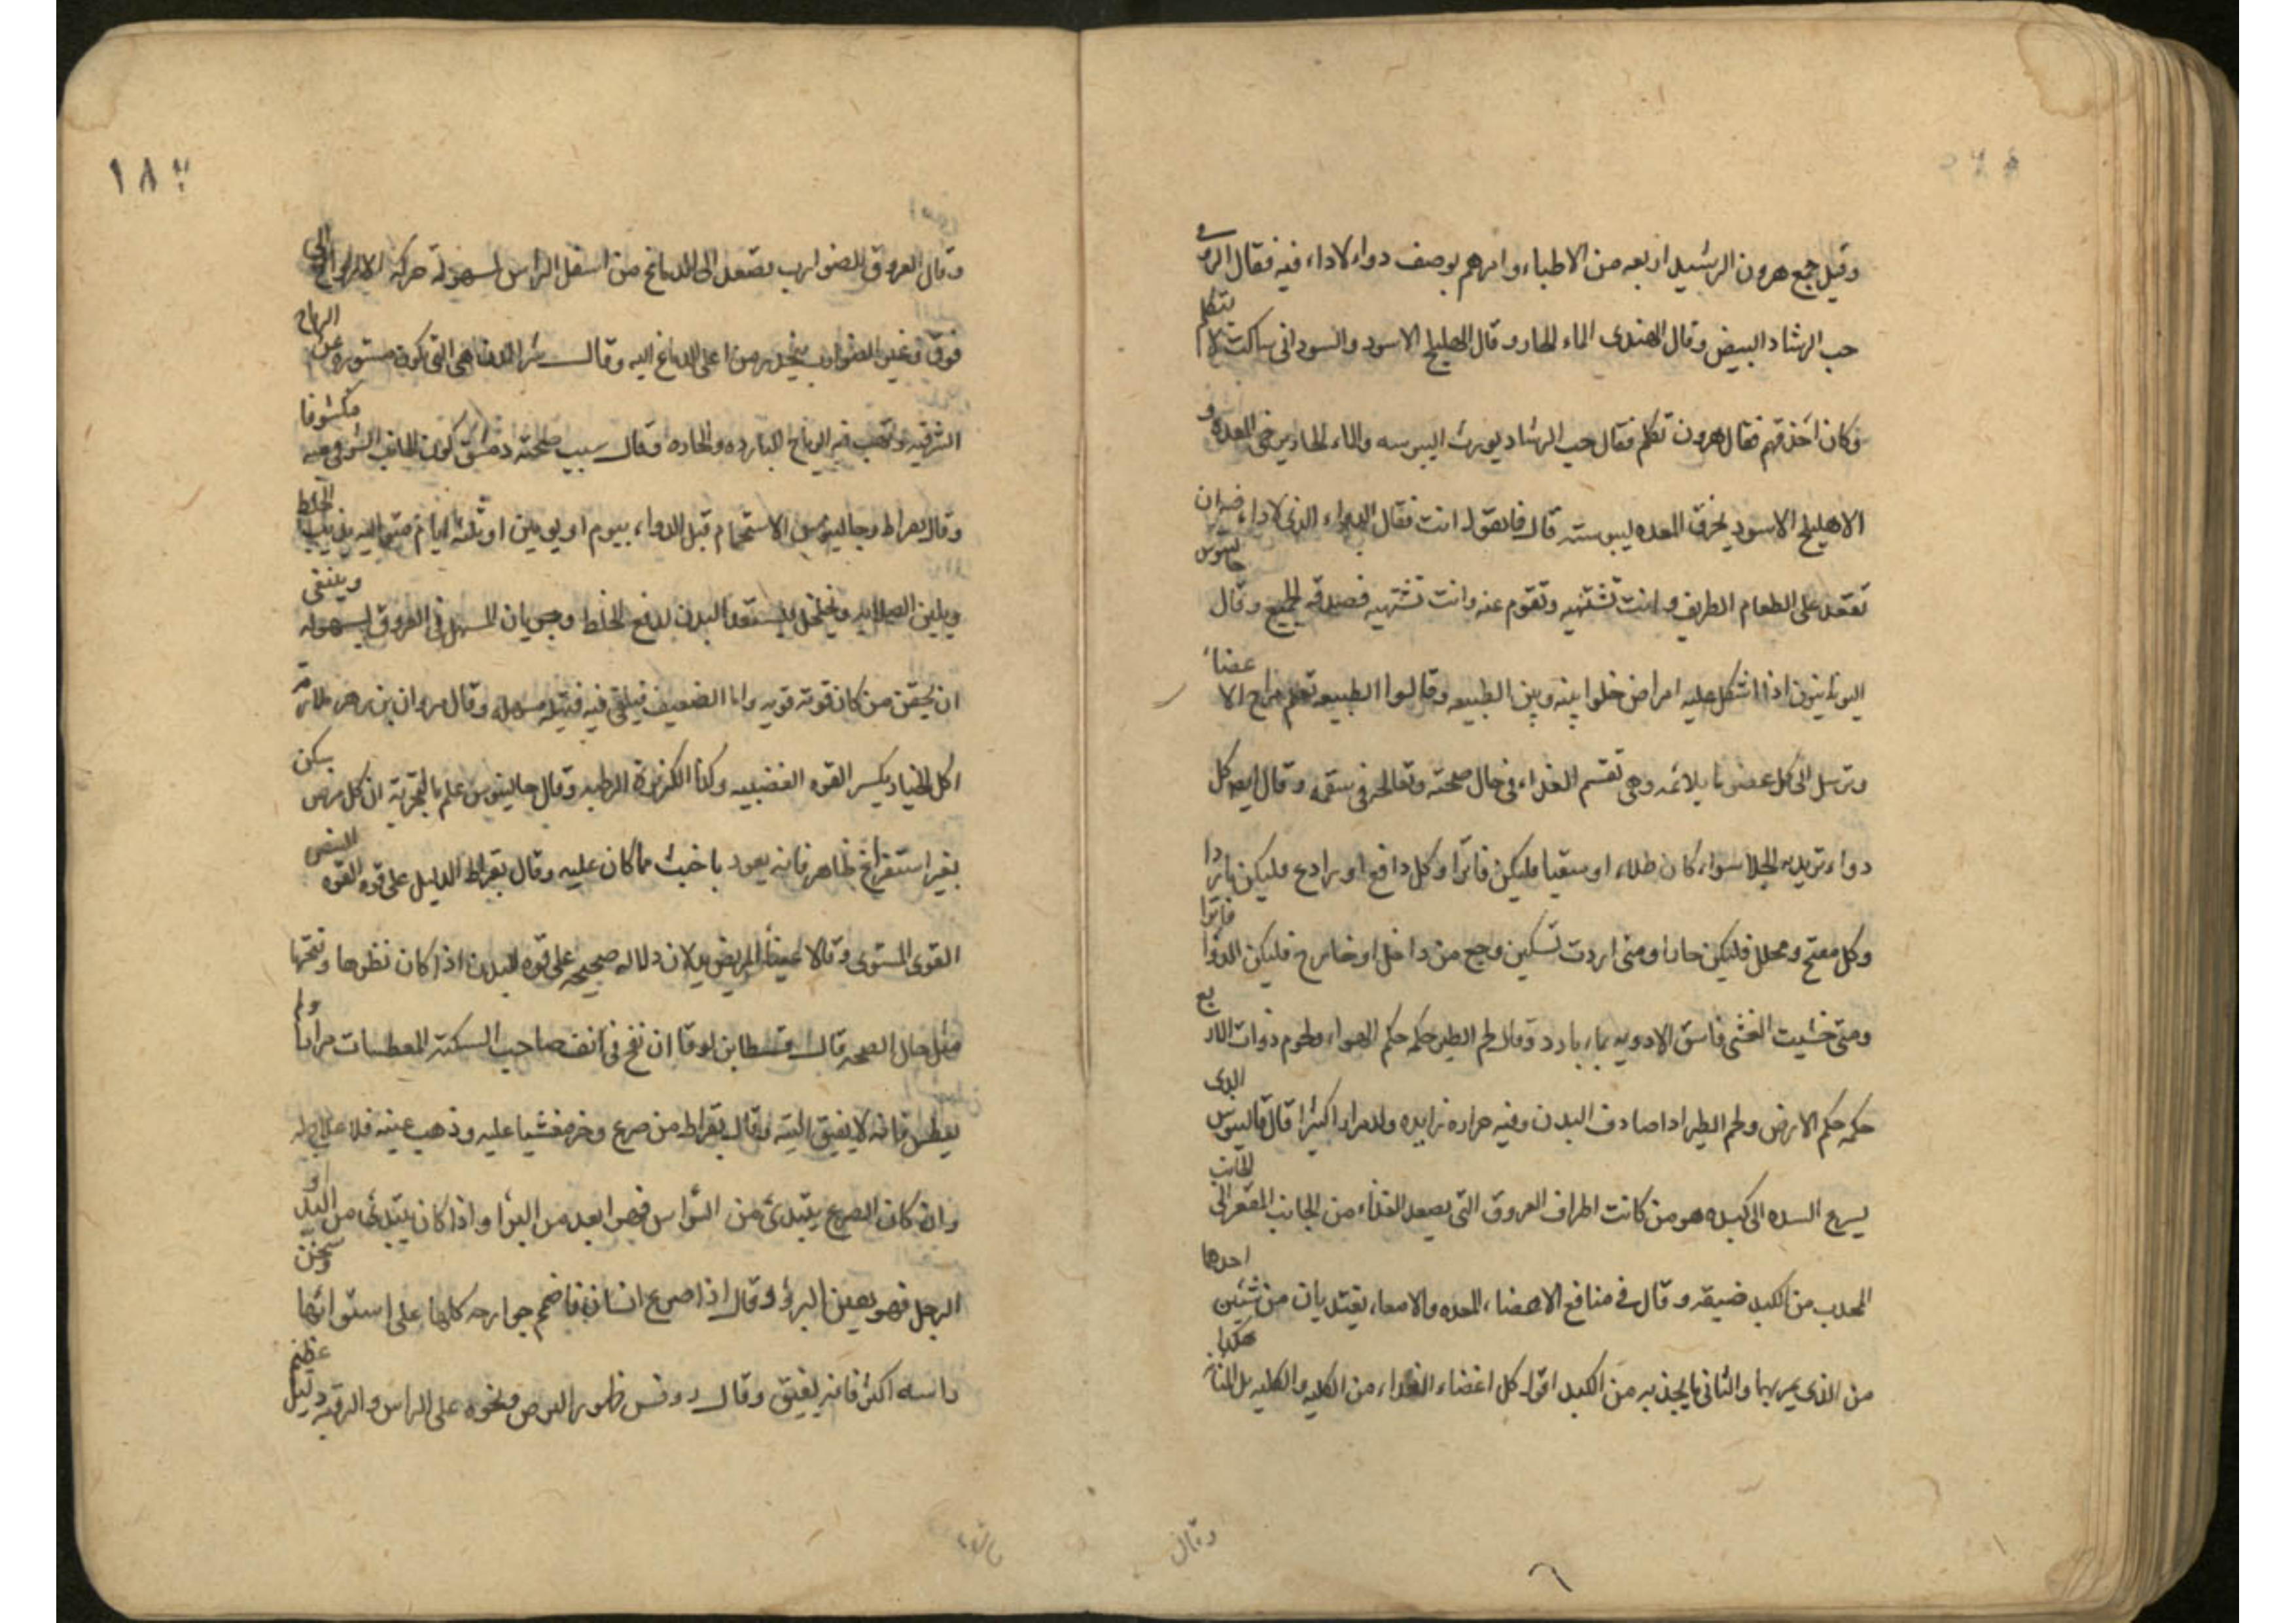 وقيل جمع هرون الرشيد اربعه من الاطباء وامرهم بوصف دواء لاداء فيه فقال الرومى
حب الرشاد البيض وقال الهندى الماء الحار وقال الهليلج الاسود والسودانى ساكت لا يتكلم
وكان احذقهم فقال هرون تكلم فقال حب الرشاد يورث اليبوسه والماء الحار يرخى المعده و
الاهليلج الاسود يخرق المعده ليبوسته قال فما تقول انت فقال الدواء الذى لاداء فيه ان
تقعد على الطعام الطريف وانت تشتهيه وتقوم عنه وانت تشتهيه فصدقه الجميع وقال جالينوس
اليونانيون اذا اشكل عليه امراض خلوا بينه وبين الطبيعه وقالوا الطبيعه تعلم مزاج الاعضاء
وترسل الى كل عضو ما يلائمه وهى تقسم الغذاء فى حال صحته وتعالجه فى سقمه وقال ايضا كل
دواء تريد به الجلا سواء كان طلاء او سقيا فليكن فاترا وكل دافع او رادع فليكن باردا
وكل مفتح ومحلل فليكن حارا ومتى اردت تسكين وجع من داخل او خارج فليكن الدوا فاترا
ومتى خشيت الغشى فاسق الادويه بماء بارد وقال لحم الطير حكمه حكم الهواء ولحوم ذوات الاربع
حكمه حكم الارض ولحم الطير اذا صادف البدن وفيه حراره زايده ولد مرارا كثيرا قال جالينوس الذى
يسرع السده الى كبده هو من كانت اطراف العروق التى يصعد الغذاء من الجانب المقعر الى الجانب
المحدب من الكبد ضيقه وقال فى منافع الاعضاء المعده والامعاء يغتذيان من شيئين احدهما
من الذى يمر بهما والثانى ما يجذبه من الكبد اقول كل اعضاء الغذاء من الكليه والكليه بل المثانه هكذا
وقال
١٨
وقال العروق الضوارب تصعد الى الدماغ من اسفل الراس لسهولة حركة الارواح الى
فوق وغير الضوارب ينحدر من اعلى الدماغ اليه وقال شر المدن هى التى تكون مستوره عن الرياح
الشرقيه وتهب فيها الرياح البارده والحاره وقال سبب صحة دمشق كون الجانب الشرقى منه مكشوفا
وقال بقراط وجالينوس الاستحمام قبل الدواء بيوم او يومين او ثلثة ايام متواليه يذيب الخلط
ويلين الصلابه ويخلخل ليستعد البدن لدفع الخلط وجريان المسهل فى العروق بسهوله وينبغى
ان يحقن من كان قوته قويه واما الضعيف فيلقى فيه فتيله مسهله وقال مروان بن زهر
اكل الخيار يكسر القوه الغضبيه وكذا الكزبرة الرطبه وقال جالينوس علم بالتجربة ان كل مرض يسكن
بغير استفراغ ظاهر فانه يعود باخبث مما كان عليه وقال بقراط الدليل على قوه القوه النبض
القوى المستوى وقالا عينا المريض يدلان دلاله صحيحه على قوه البدن اذا كان نظرها وفتحها
مثل حال الصحه قال قسطا بن لوقا ان نفخ فى انف صاحب السكته المعطسات مرارا ولم
يعطس فانه لا يفيق البته وقال بقراط من صرع وخر مغشيا عليه وذهب عينه فلا علاج له
وان كان الصرع يبتدى من الرأس فهو ابعد من البرأ واذا كان يبتدى من اليد و
الرجل فهو بعين البرؤ وقال اذا صرع انسان فاضمم جوارحه كلها على استوائها وسخن
راسه اكثر فانه يفيق وقال روفس ظهور البرص ونحوه على الراس والرقبه دليل عظيم